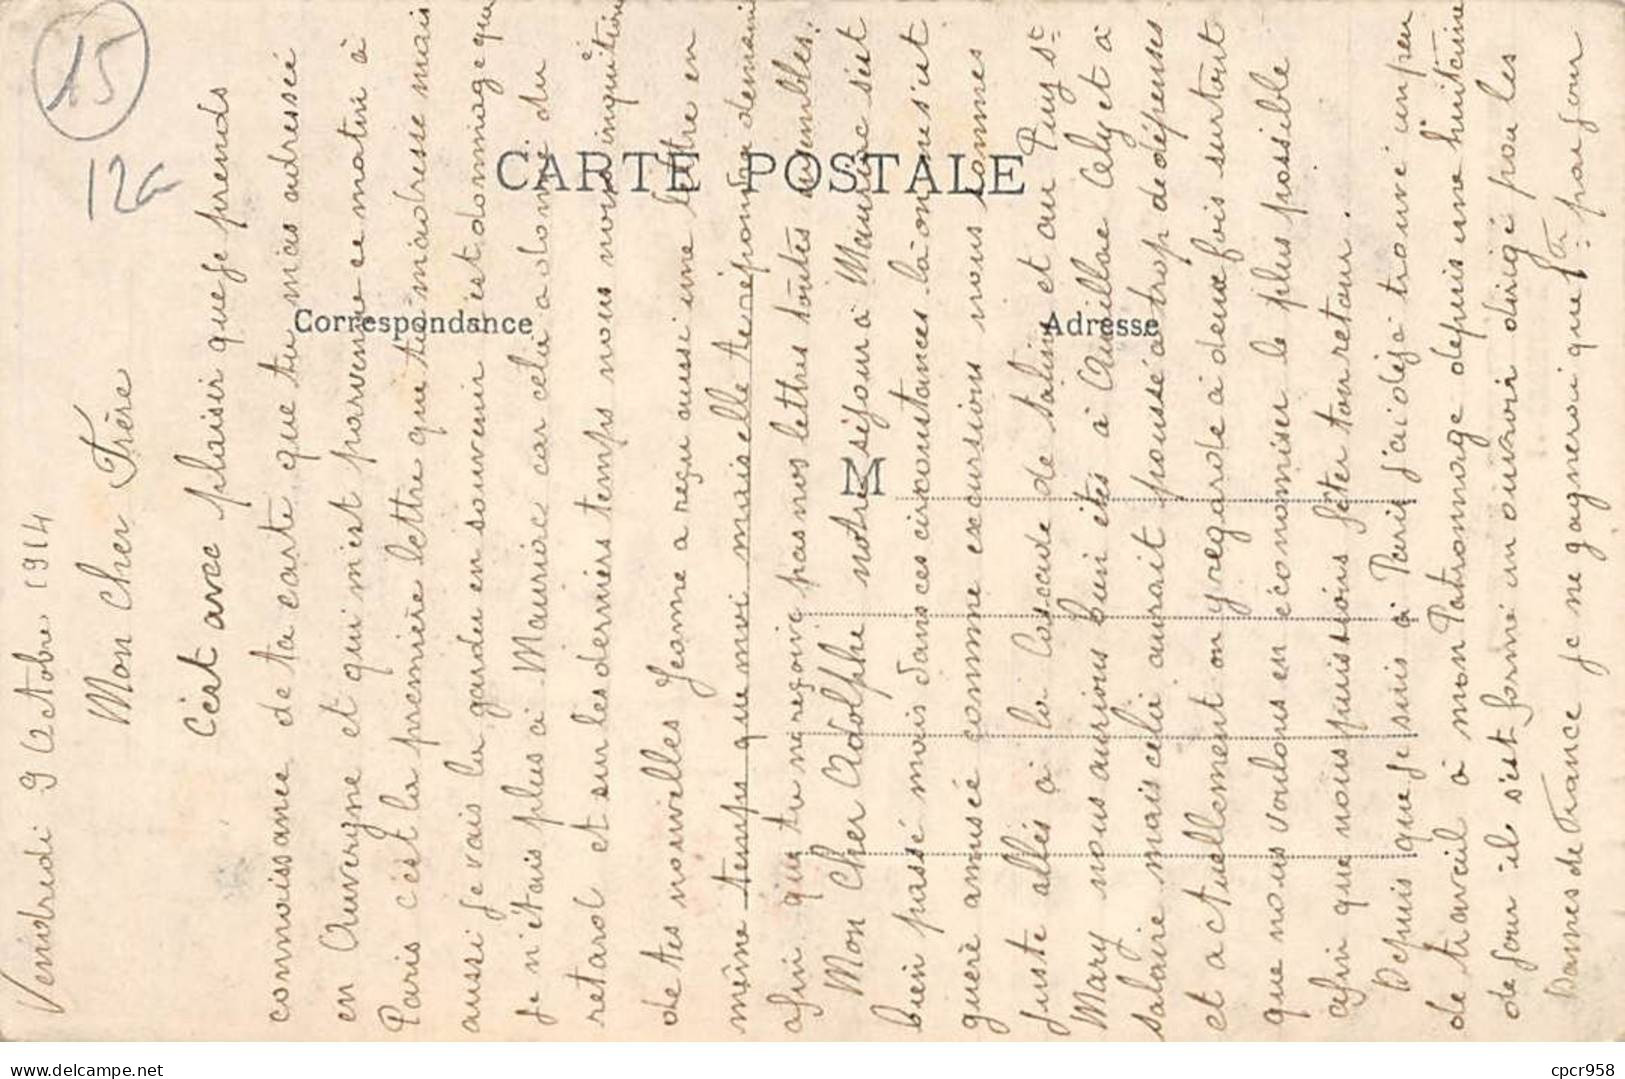 15
12a
CARTE POSTALE
Correspondance
Adresse
M
Vendredi 9 Octobre 1914
Mon Cher Frère
C'est avec plaisir que je prends
connaissance de ta carte que tu m'as adressée
en Auvergne et qui m'est parvenue ce matin à
Paris c'est la première lettre que tu m'adresse mais
aussi je vais la garder en souvenir est dommage que
je n'étais plus à Mauriac car cela a donné du
retard et sur les derniers temps nous nous inquiétions
de tes nouvelles Jeanne a reçu aussi une lettre en
même temps que moi mais elle te répondra demain
afin que tu ne reçoive pas nos lettres toutes ensembles.
Mon Cher Adolphe notre séjour à Mauriac s'est
bien passé mais dans ces circonstances là on ne s'est
guerè amusée comme excursions nous sommes
juste allés à la Cascade de Salins et au Puy St
Mary nous aurions bien étés à Aurillac Cely et à
Salaire mais cela aurait poussé a trop de dépenses
et actuellement on y regarde à deux fois surtout
que nous voulons en économiser le plus possible
afin que nous puissions fêter ton retour.
Depuis que je suis à Paris j'ai déjà trouvé un peu
de travail à mon Patronnage depuis une huitaine
de jour il s'est formé un ouvroir dirigé par les
Dames de France je ne gagnerai que 1F par jour
cpcr958